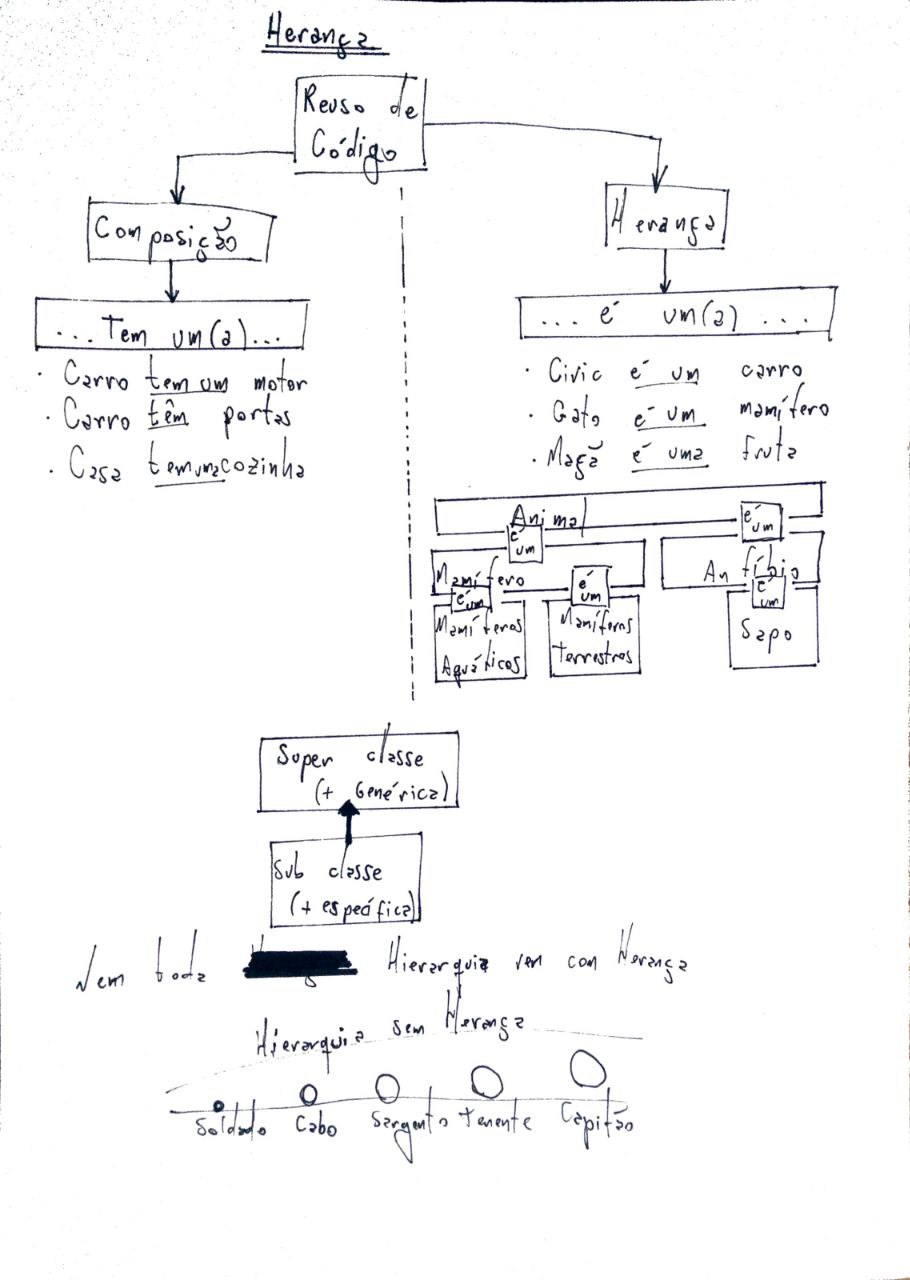 Herança
Reuso de
Código
Composição
Herança
... Tem um(a)...
... é um(a) ...
· Carro tem um motor
· Carro têm portas
· Casa tem uma cozinha
· Civic é um carro
· Gato é um mamífero
· Maçã é uma fruta
Animal
é um
é um
Mamífero
Anfíbio
é um
é um
é um
Mamíferos
Aquáticos
Mamíferos
Terrestres
Sapo
Super classe
(+ Genérica)
Sub classe
(+ específica)
Nem toda Hierarquia vem com Herança
Hierarquia sem Herança
Soldado Cabo Sargento Tenente Capitão